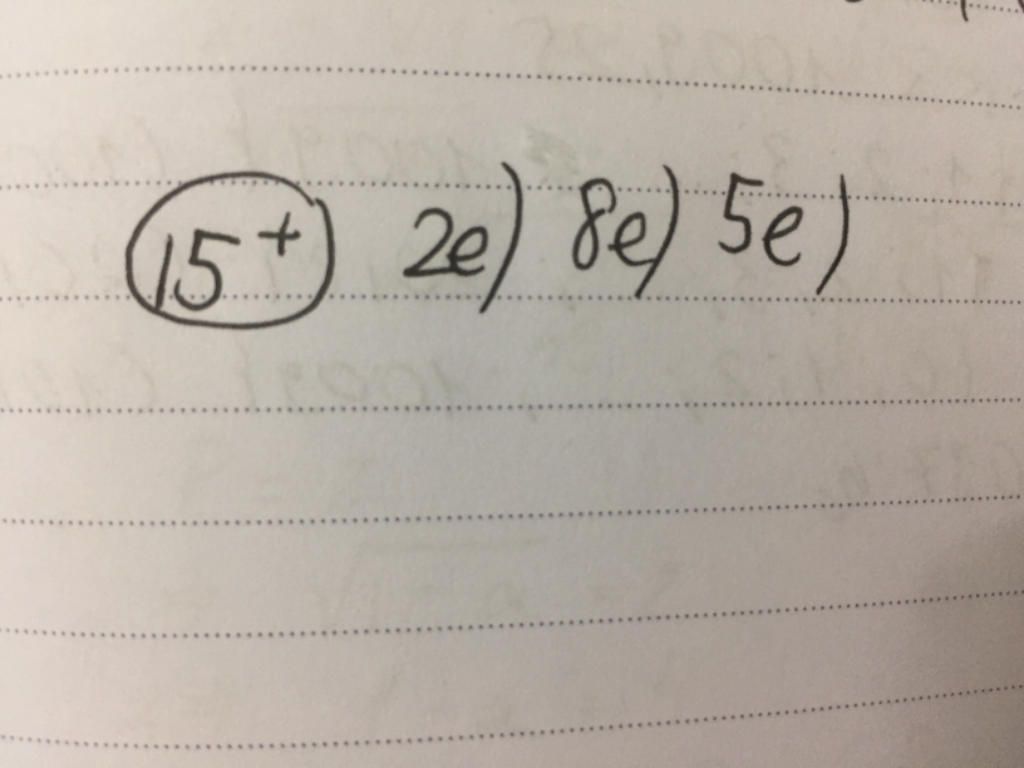 15⁺ 2e) 8e) 5e)